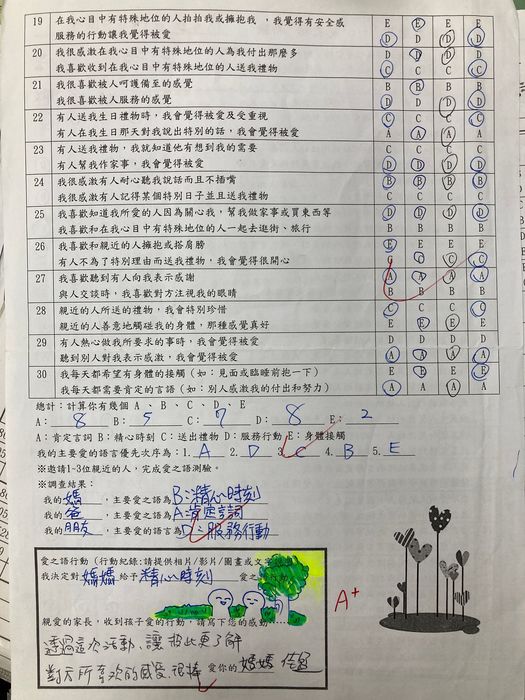 19 在我心目中有特殊地位的人拍拍我或擁抱我，我覺得有安全感 E E E E
服務的行動讓我覺得被愛 D D D D
20 我很感激在我心目中有特殊地位的人為我付出那麼多 D D D D
我喜歡收到在我心目中有特殊地位的人送我禮物 C C C C
21 我很喜歡被人呵護備至的感覺 B B B B
我很喜歡被人服務的感覺 D D D D
22 有人送我生日禮物時，我會覺得被愛及受重視 C C C C
有人在我生日那天對我說出特別的話，我會覺得被愛 A A A A
23 有人送我禮物，我就知道他有想到我的需要 C C C C
有人幫我作家事，我會覺得被愛 D D D D
24 我很感激有人耐心聽我說話而且不插嘴 B B B B
我很感激有人記得某個特別日子並且送我禮物 C C C C
25 我喜歡知道我所愛的人因為關心我，幫我做家事或買東西等 D D D D
我喜歡和在我心目中有特殊地位的人一起去逛街、旅行 B B B B
26 我喜歡和親近的人擁抱或搭肩膀 E E E E
有人不為了特別理由而送我禮物，我會覺得很開心 C C C C
27 我喜歡聽到有人向我表示感謝 A A A A
與人交談時，我喜歡對方注視我的眼睛 B B B B
28 親近的人所送的禮物，我會特別珍惜 C C C C
親近的人善意地觸碰我的身體，那種感覺真好 E E E E
29 有人熱心做我所要求的事時，我會覺得被愛 D D D D
聽到別人對我表示感激，我會覺得被愛 A A A A
30 我每天都希望有身體的接觸（如：見面或臨睡前抱一下） E E E E
我每天都需要肯定的言語（如：別人感激我的付出和努力） A A A A
總計：計算你有幾個 A、B、C、D、E
A：8 B：5 C：7 D：8 E：2
A：肯定言詞 B：精心時刻 C：送出禮物 D：服務行動 E：身體接觸
我的主要愛的語言優先次序為：1.A 2.D 3.C 4.B 5.E
※邀請1-3位親近的人，完成愛之語測驗。
※調查結果：
我的媽，主要愛之語為B：精心時刻
我的爸，主要愛之語為A：肯定言詞
我的朋友，主要愛的語言為D：服務行動
愛之語行動（行動紀錄：請提供相片/影片/圖畫或文字
我決定對媽媽給予精心時刻愛之
親愛的家長，收到孩子愛的行動，請寫下您的感動……
A+
透過這次活動，讓彼此更了解
對方所喜歡的感受，很棒 愛你的媽媽